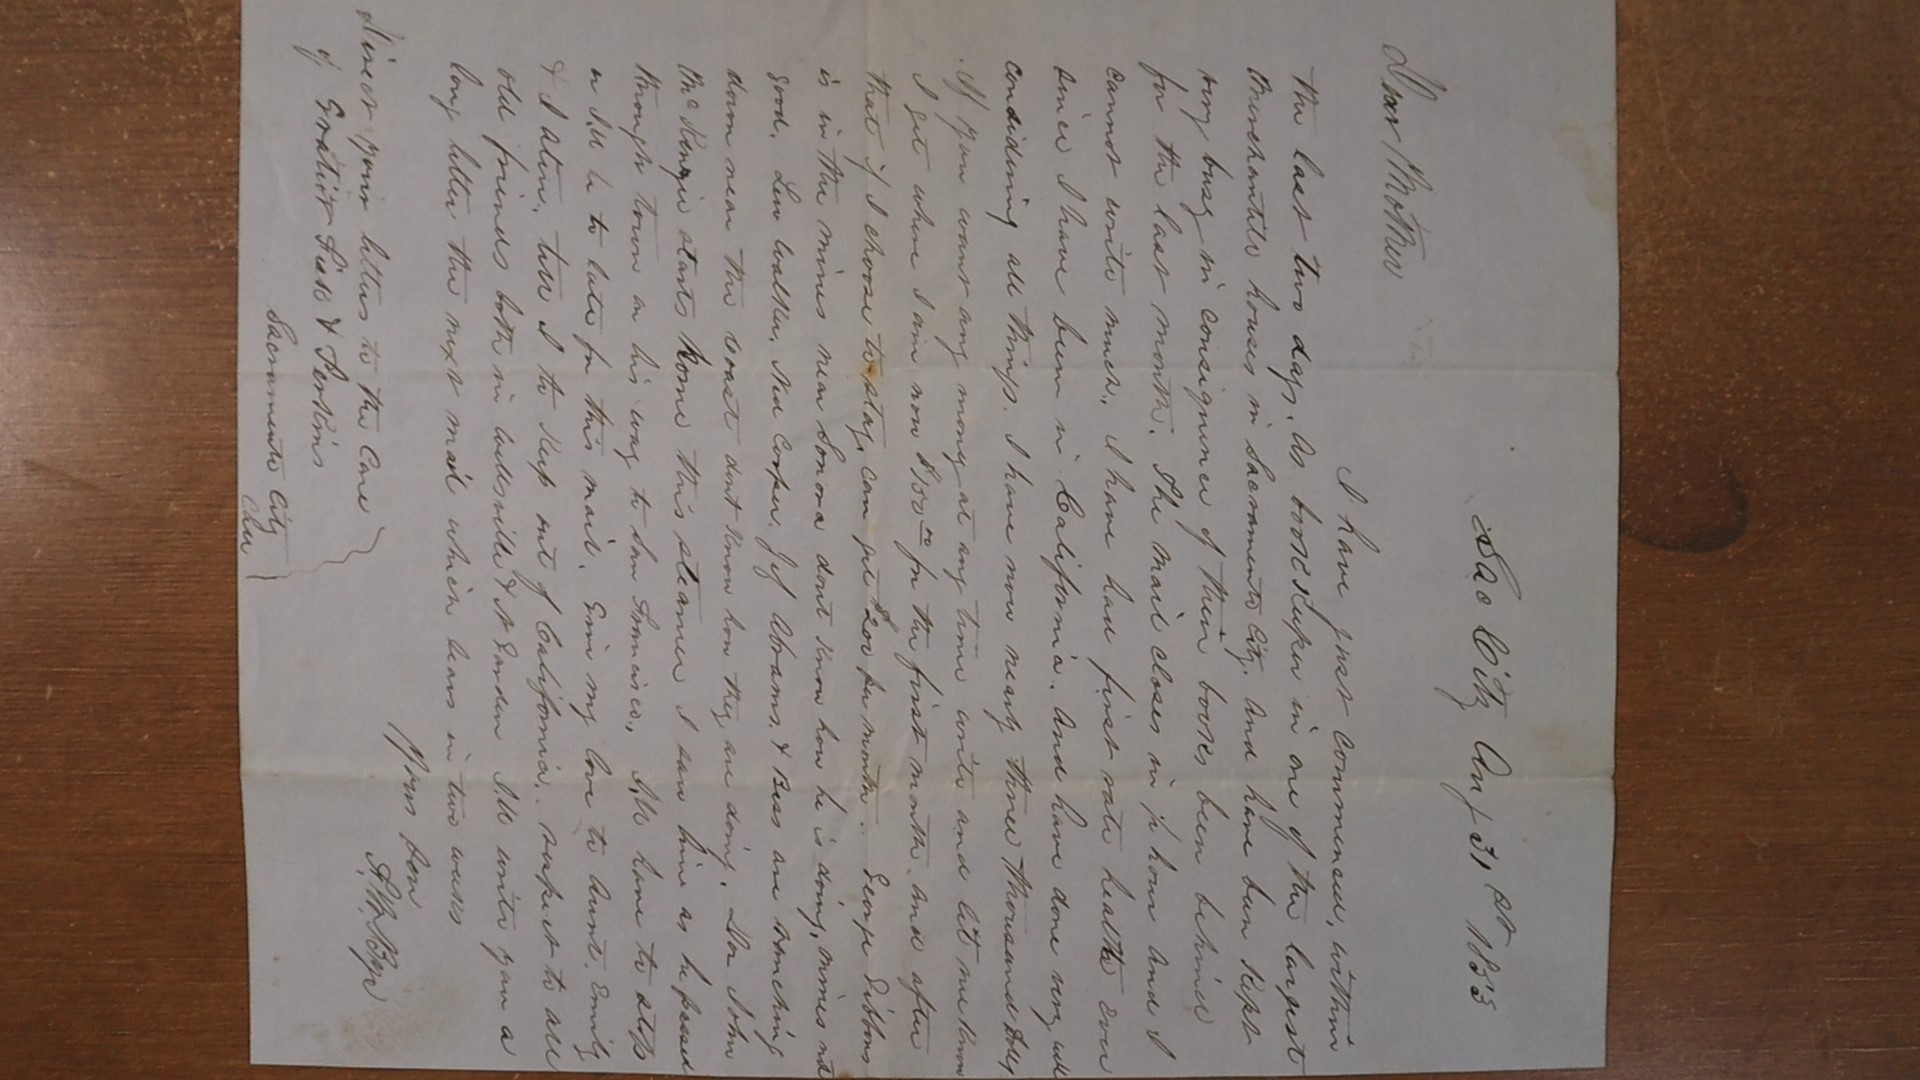 Sac City Aug 31st 1853
Dear Mother
I have just commenced, within
the last two days, as book Keeper in one of the largest
Merchantile houses in Sacramento City. And have been Kept
very busy in consequence of their books been behind
for the last month. The mail closes in ½ hour and I
cannot write much. I have had first rate health ever
since I have been in California. And have done very well
considering all things. I have now nearly three thousand
If you want any mony at any time write and let me know
I get where I am now $150 00 for the first month. and after
that if I choose to stay, can get $200 per month. George Gibbons
is in the mines near Sonora dont Know how he is doing, mines not
good. Lew Walker, Ned Cooper, Jef Abrams, & Bess are ranching
down near the coast dont Know how they are doing. Dor John
McKenzie starts home this steamer I saw him as he passed
through town on his way to San Francisco,, have to stop
or to late for this mail. Give my love to Aunt. Emily
& tell to Keep out of California. respect to all
old friends both in & write you a
long letter the next mail which leaves in two weeks
Yours Son
Direct your letters to the Care
of & Perkins
Sacramento City